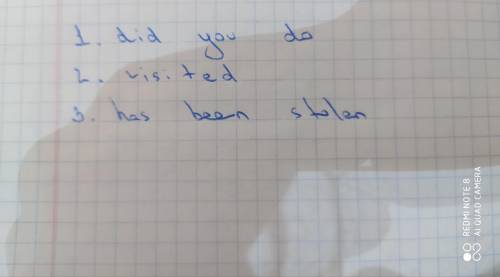 1. did you do
2. visited
3. has been stolen
REDMI NOTE 8
AI QUAD CAMERA